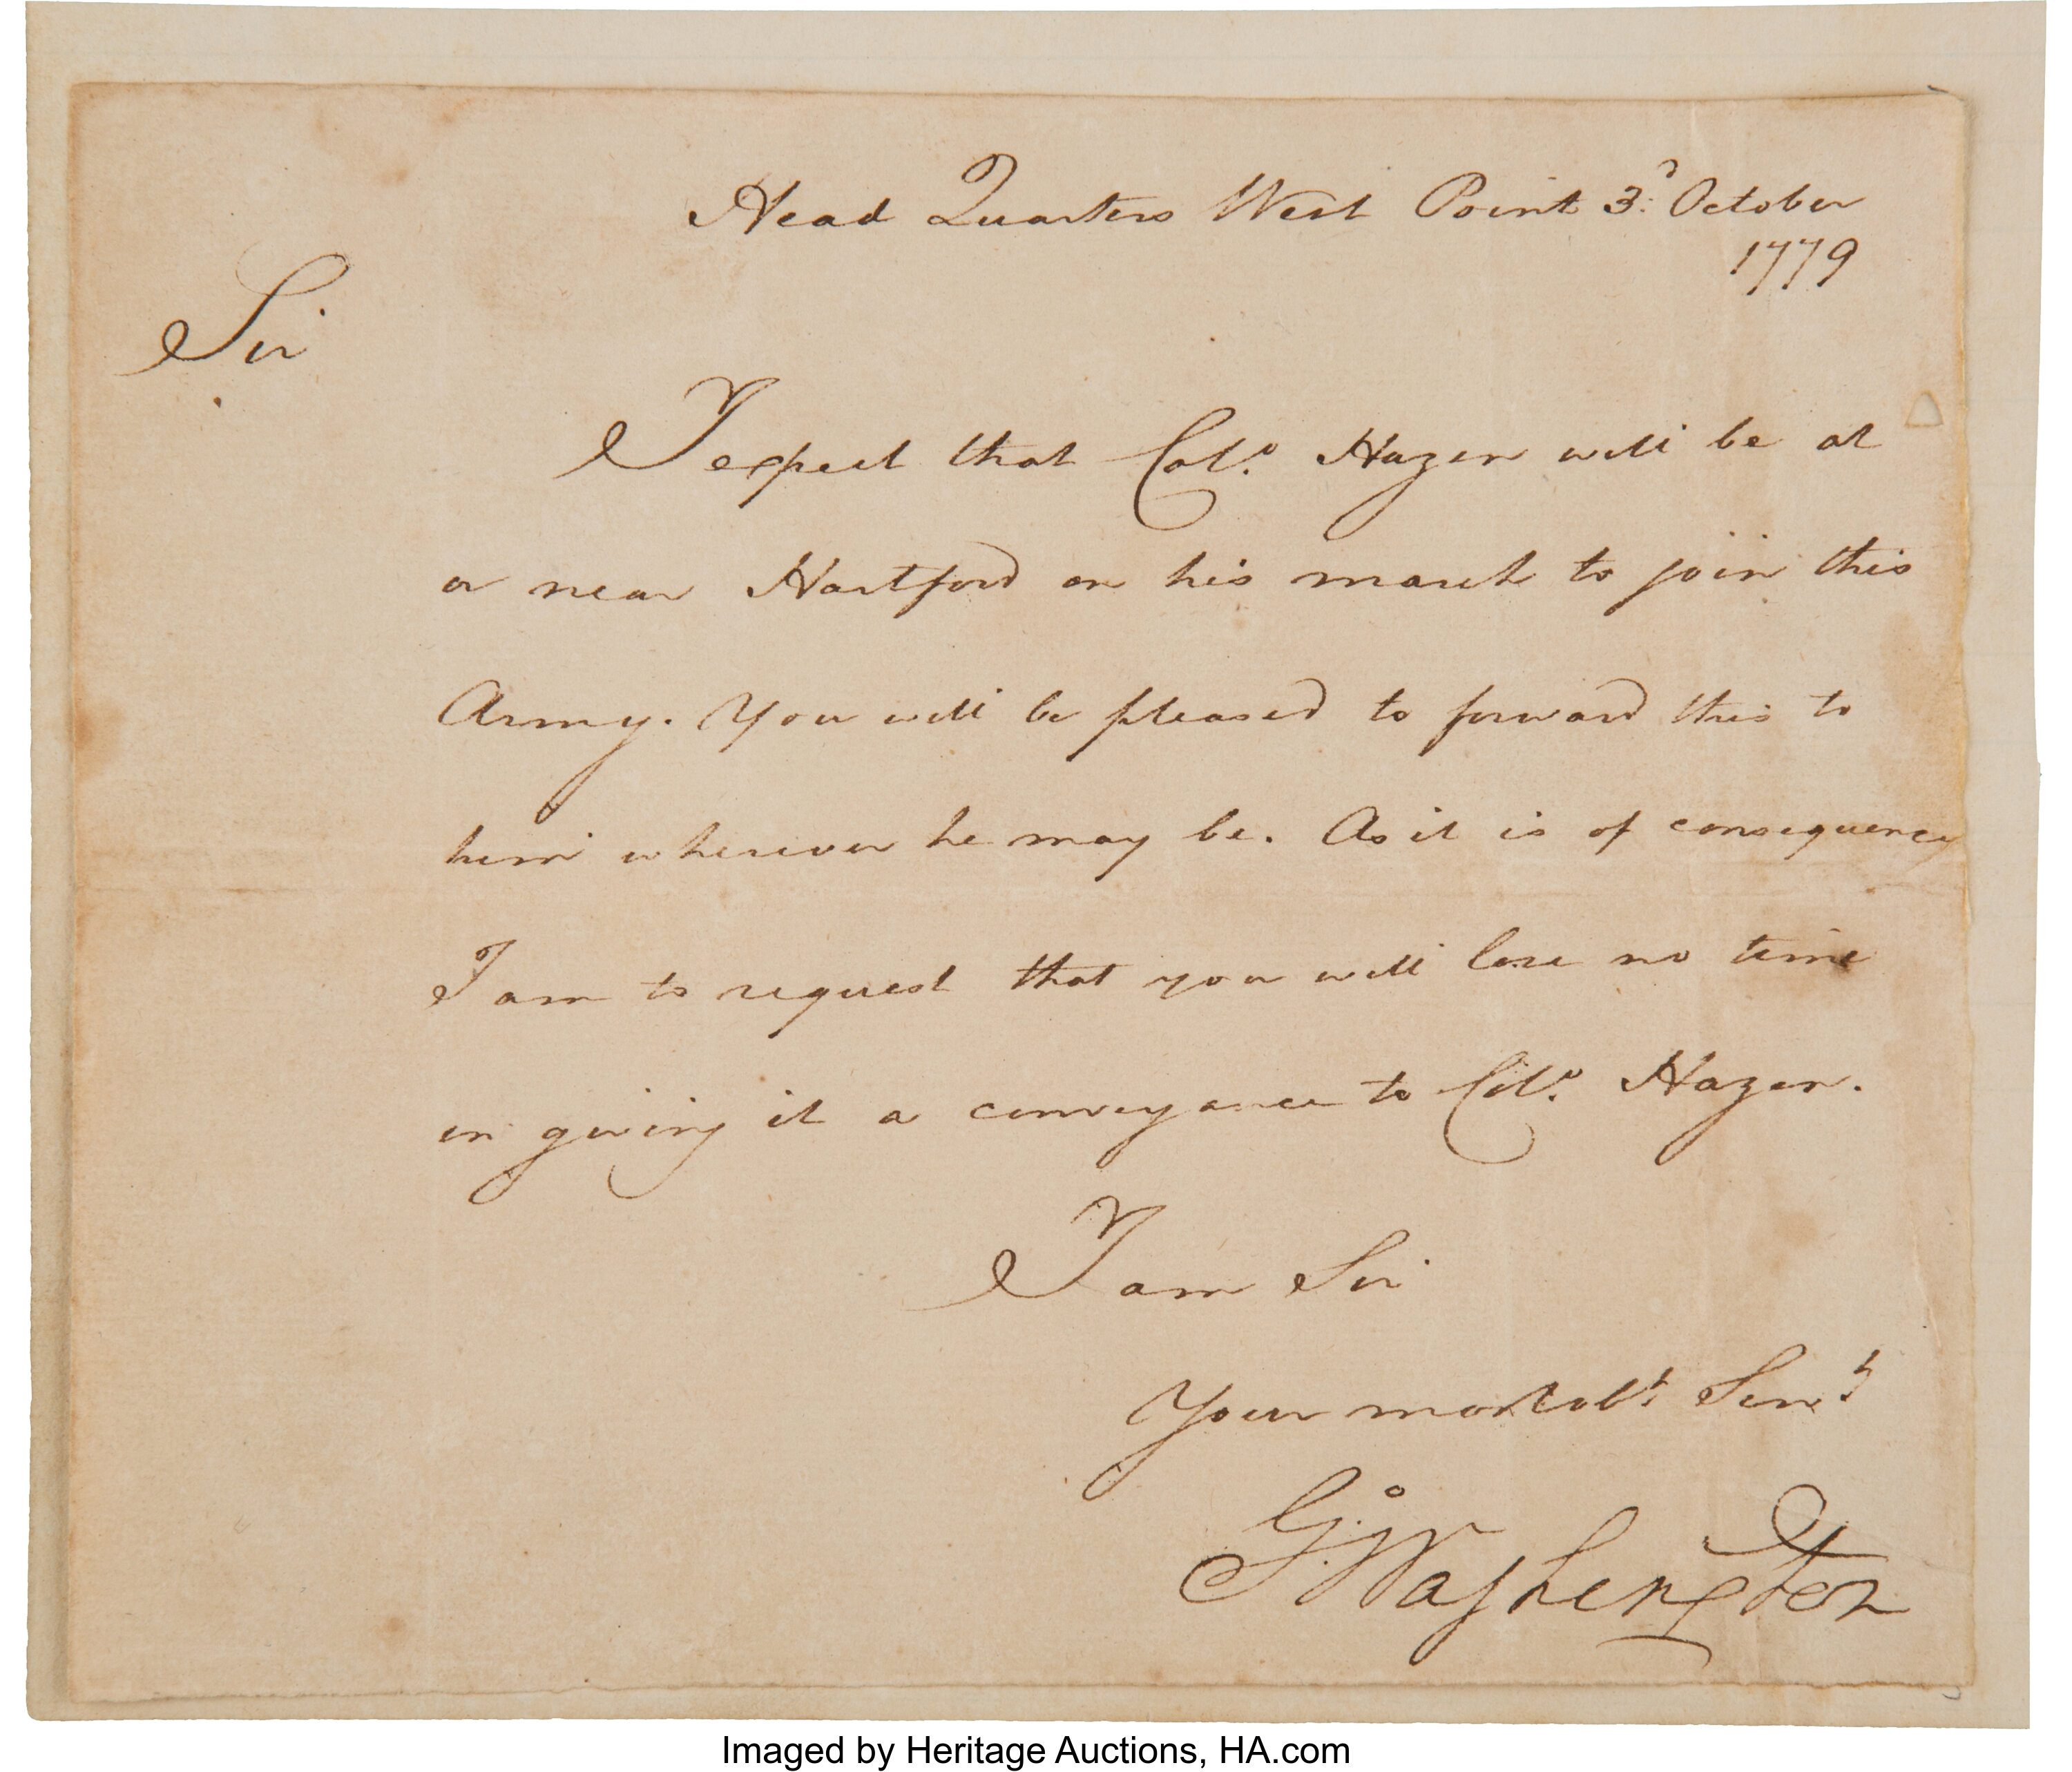 Head Quarters West Point 3.d October
1779
Sir
I expect that Colo. Hazen will be at
or near Hartford on his march to join this
Army. You will be pleased to forward this to
him wherever he may be. As it is of consequence
I am to request that you will lose no time
in giving it a conveyance to Colo. Hazen.
I am Sir
Your most obt Servt
Go: Washington
Imaged by Heritage Auctions, HA.com